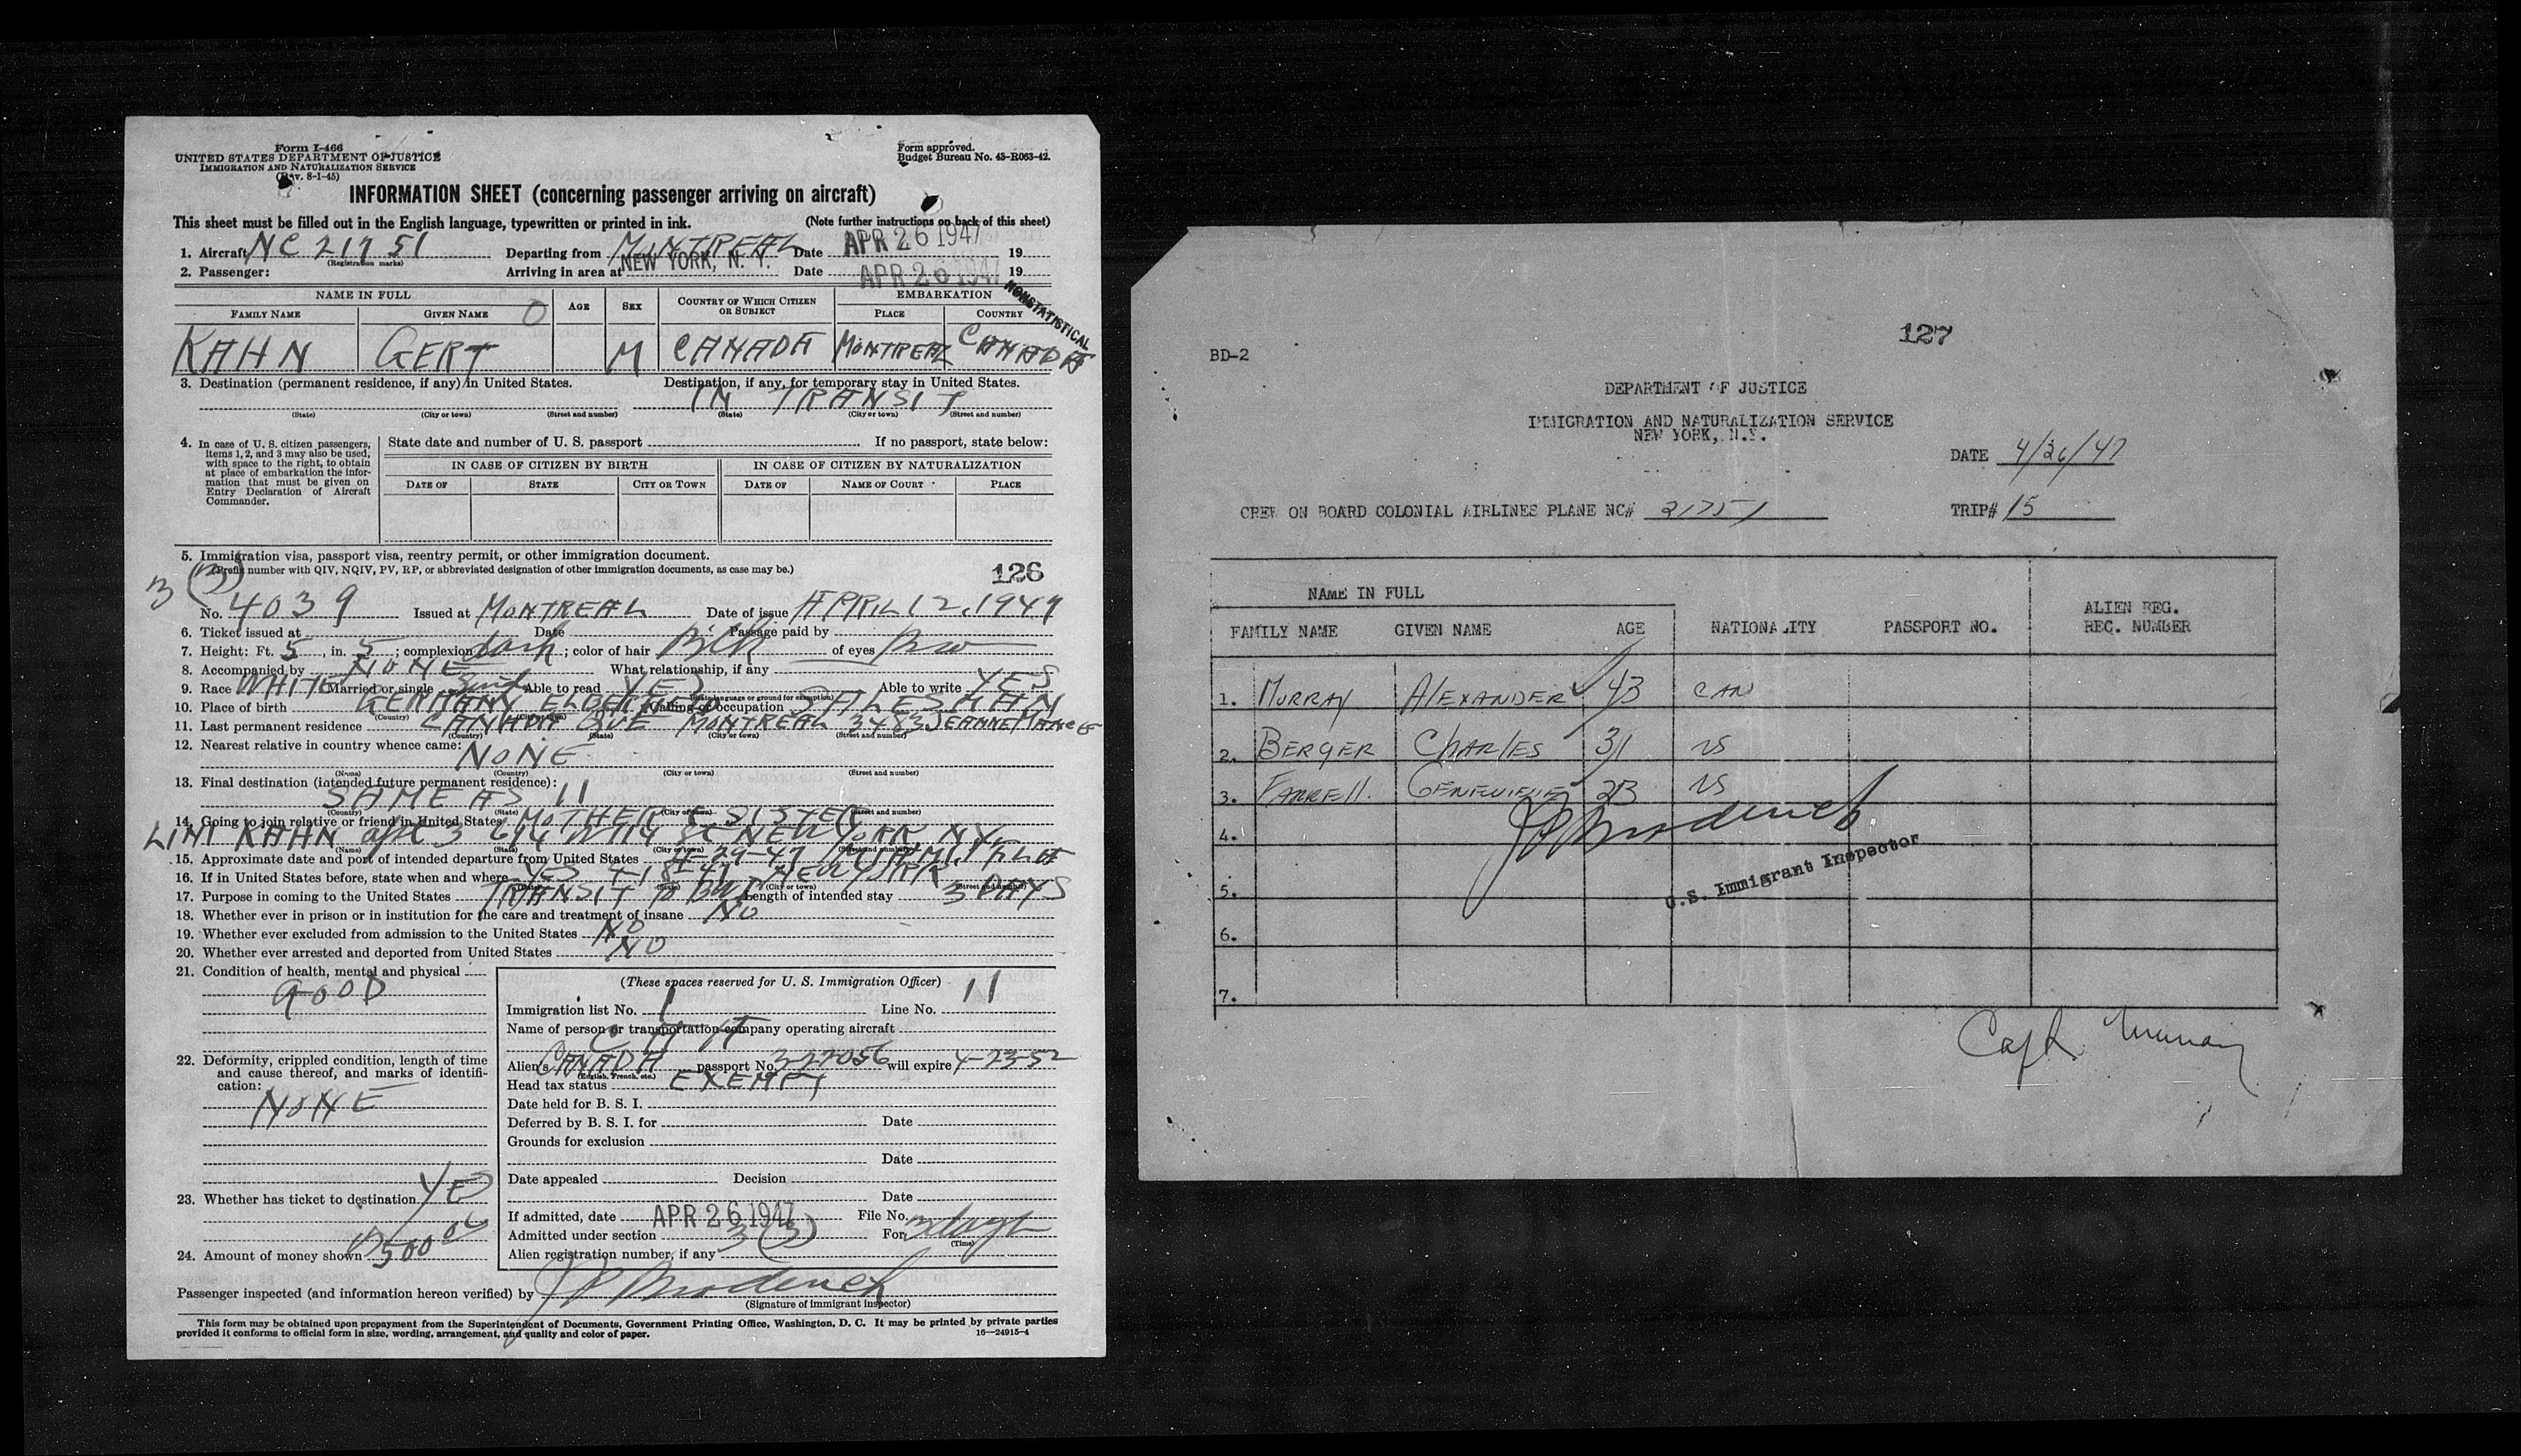 Form I-466
UNITED STATES DEPARTMENT OF JUSTICE
IMMIGRATION AND NATURALIZATION SERVICE
(Rev. 8-1-45)
Form approved.
Budget Bureau No. 43-R063-42.
INFORMATION SHEET (concerning passenger arriving on aircraft)
This sheet must be filled out in the English language, typewritten or printed in ink. (Note further instructions on back of this sheet)
1. Aircraft NC 21751 Departing from MONTREAL Date APR 26 1947 19
(Registration marks)
2. Passenger: Arriving in area at NEW YORK, N. Y. Date APR 26 1947 19
NONSTATISTICAL
NAME IN FULL AGE SEX COUNTRY OF WHICH CITIZEN OR SUBJECT EMBARKATION
FAMILY NAME GIVEN NAME PLACE COUNTRY
KAHN GERT M CANADA MONTREAL CANADA
3. Destination (permanent residence, if any) in United States. Destination, if any, for temporary stay in United States.
IN TRANSIT
(State) (City or town) (Street and number) (State) (City or town) (Street and number)
4. In case of U. S. citizen passengers, items 1, 2, and 3 may also be used, with space to the right, to obtain at place of embarkation the information that must be given on Entry Declaration of Aircraft Commander.
State date and number of U. S. passport If no passport, state below:
IN CASE OF CITIZEN BY BIRTH IN CASE OF CITIZEN BY NATURALIZATION
DATE OF STATE CITY OR TOWN DATE OF NAME OF COURT PLACE
5. Immigration visa, passport visa, reentry permit, or other immigration document.
(Prefix number with QIV, NQIV, PV, RP, or abbreviated designation of other immigration documents, as case may be.)
3 (3) 126
No. 4039 Issued at MONTREAL Date of issue APRIL 12, 1947
6. Ticket issued at Date Passage paid by
7. Height: Ft. 5, in. 5; complexion dark; color of hair Blk of eyes Brw
8. Accompanied by NONE What relationship, if any
9. Race WHITE Married or single Able to read YES Able to write YES
10. Place of birth GERMANY ELBERFELD Calling or occupation SALESMAN
11. Last permanent residence CANADA QUE MONTREAL 3483 JEANNE MANCE
(Country) (State) (City or town) (Street and number)
12. Nearest relative in country whence came: NONE
(Name) (Country) (City or town) (Street and number)
13. Final destination (intended future permanent residence):
SAME AS 11
(Country) (State) (City or town) (Street and number)
14. Going to join relative or friend in United States MOTHER & SISTER
LINI KAHN apt 3 614 W 114 ST NEW YORK N.Y.
15. Approximate date and port of intended departure from United States 4-29-47 MIAMI, FLA
16. If in United States before, state when and where YES 4-18-47 NEW YORK
17. Purpose in coming to the United States TRANSIT to BWI Length of intended stay 3 DAYS
18. Whether ever in prison or in institution for the care and treatment of insane NO
19. Whether ever excluded from admission to the United States NO
20. Whether ever arrested and deported from United States NO
21. Condition of health, mental and physical
GOOD
22. Deformity, crippled condition, length of time and cause thereof, and marks of identification:
NONE
23. Whether has ticket to destination YES
24. Amount of money shown $500 00
(These spaces reserved for U. S. Immigration Officer)
Immigration list No. 1 Line No. 11
Name of person or transportation company operating aircraft
Alien's CANADA passport No. 3-27056 will expire 4-23-52
(English, French, etc.)
Head tax status EXEMPT
Date held for B. S. I.
Deferred by B. S. I. for Date
Grounds for exclusion
Date
Date appealed Decision
Date
If admitted, date APR 26 1947 File No.
Admitted under section 3 (3) For 3 days
(Time)
Alien registration number, if any
Passenger inspected (and information hereon verified) by
(Signature of immigrant inspector)
This form may be obtained upon prepayment from the Superintendent of Documents, Government Printing Office, Washington, D. C. It may be printed by private parties
provided it conforms to official form in size, wording, arrangement, and quality and color of paper. 16—24915-4
127
BD-2
DEPARTMENT OF JUSTICE
IMMIGRATION AND NATURALIZATION SERVICE
NEW YORK, N.Y.
DATE 4/26/47
CREW ON BOARD COLONIAL AIRLINES PLANE NC# 21751 TRIP# 15
NAME IN FULL
FAMILY NAME GIVEN NAME AGE NATIONALITY PASSPORT NO. ALIEN REG. REC. NUMBER
1. MURRAY ALEXANDER 43 CAN
2. BERGER CHARLES 31 US
3. FARRELL. GENEVIEVE 23 US
4.
U.S. Immigrant Inspector
5.
6.
7.
Capt. Murray